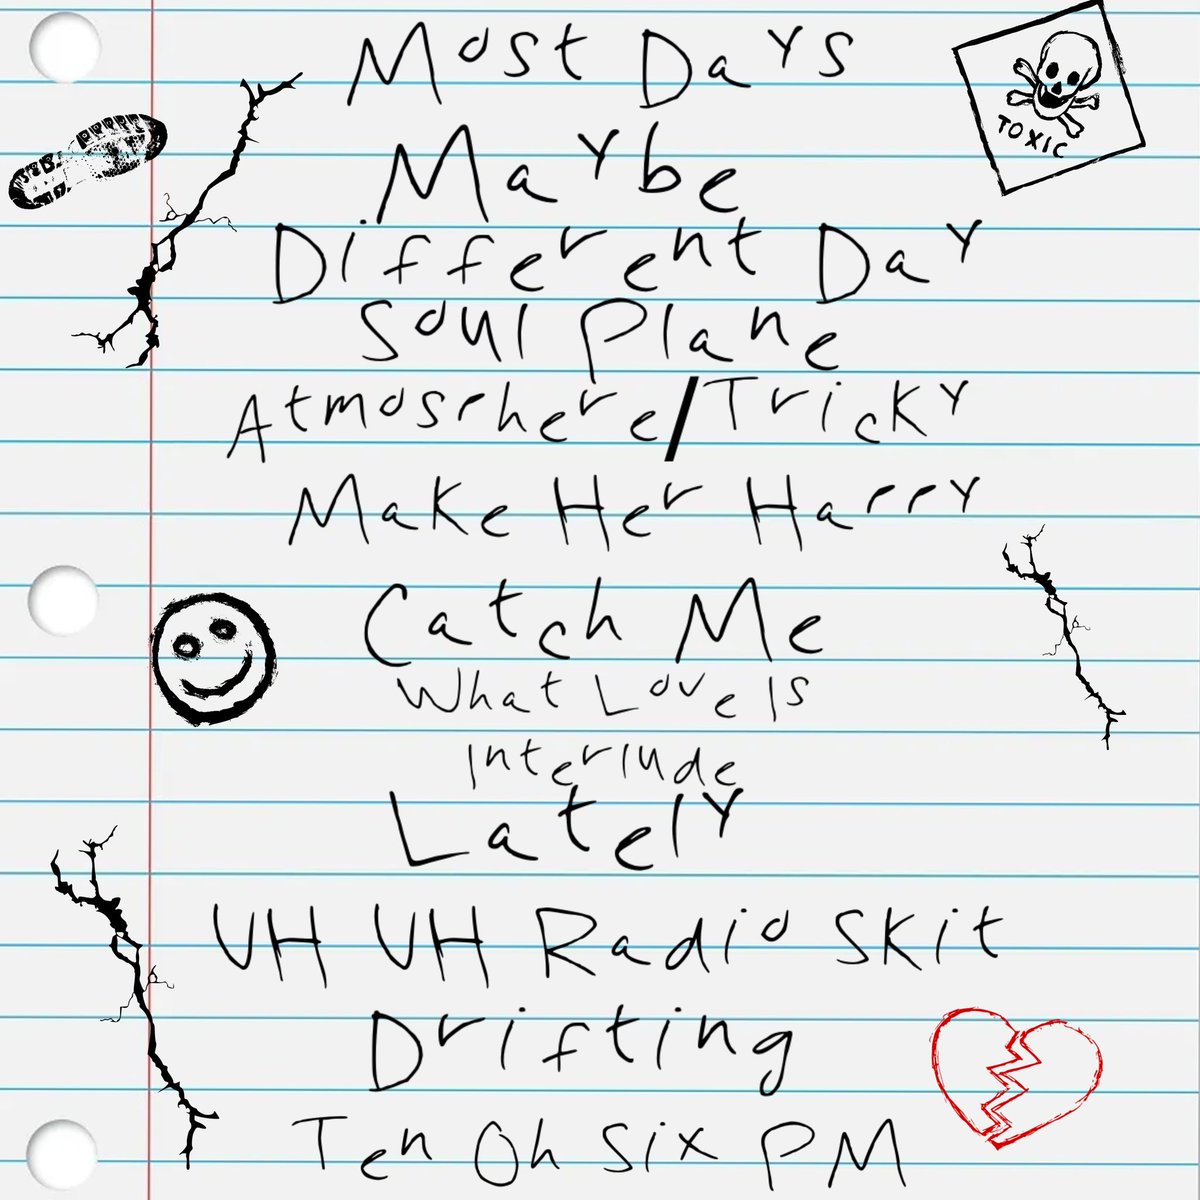 Most Days
TOXIC
Maybe
Different Day
Soul Plane
Atmosphere/Tricky
Make Her Happy
Catch Me
What Love Is
Interlude
Lately
UH UH Radio Skit
Drifting
Ten Oh Six PM